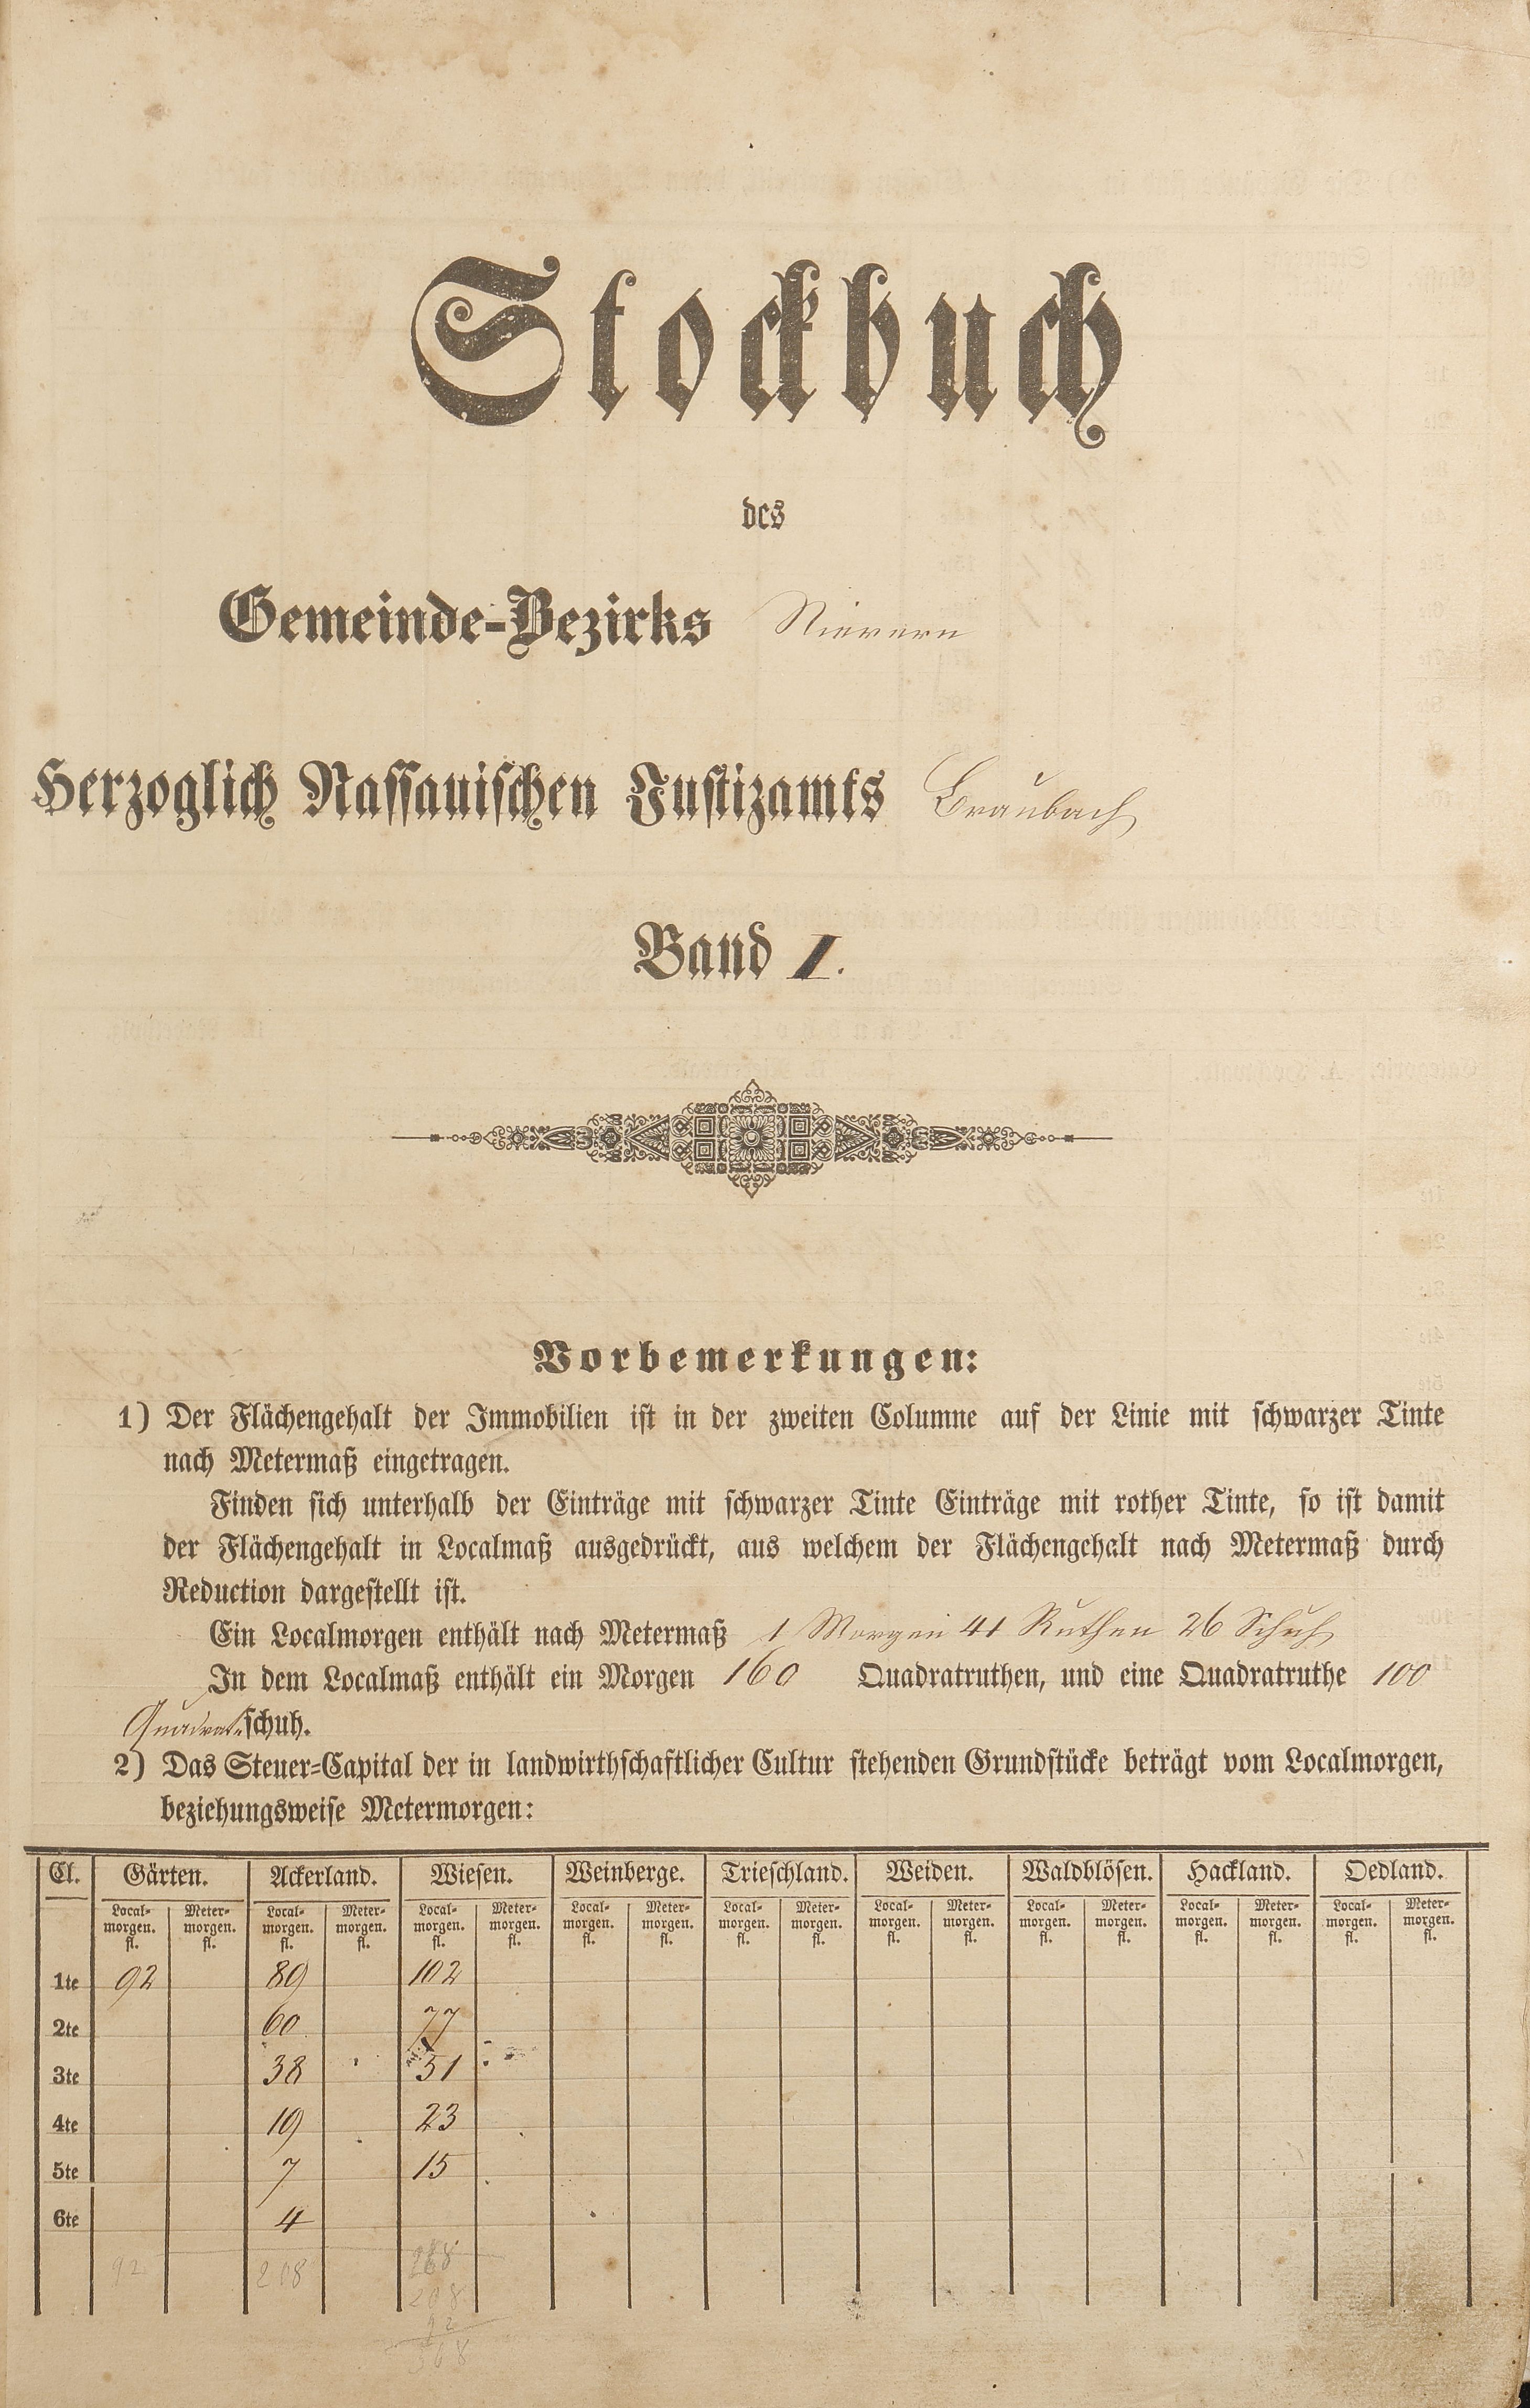 Stockbuch
des
Gemeinde-Bezirks Nievern
Herzoglich Nassauischen Justizamts Braubach
Band I.
Vorbemerkungen:
1) Der Flächengehalt der Immobilien ist in der zweiten Columne auf der Linie mit schwarzer Tinte
nach Metermaß eingetragen.
Finden sich unterhalb der Einträge mit schwarzer Tinte Einträge mit rother Tinte, so ist damit
der Flächengehalt in Localmaß ausgedrückt, aus welchem der Flächengehalt nach Metermaß durch
Reduction dargestellt ist.
Ein Localmorgen enthält nach Metermaß 1 Morgen 41 Ruthen 26 Schuh
In dem Localmaß enthält ein Morgen 160 Quadratruthen, und eine Quadratruthe 100
Quadratschuh.
2) Das Steuer-Capital der in landwirthschaftlicher Cultur stehenden Grundstücke beträgt vom Localmorgen,
beziehungsweise Metermorgen:
Cl. Gärten. Ackerland. Wiesen. Weinberge. Trieschland. Weiden. Waldblösen. Hackland. Oedland.
Local- Meter- Local- Meter- Local- Meter- Local- Meter- Local- Meter- Local- Meter- Local- Meter- Local- Meter- Local- Meter-
morgen. morgen. morgen. morgen. morgen. morgen. morgen. morgen. morgen. morgen. morgen. morgen. morgen. morgen. morgen. morgen. morgen. morgen.
fl. fl. fl. fl. fl. fl. fl. fl. fl. fl. fl. fl. fl. fl. fl. fl. fl. fl.
1te 92 89 102
2te 60 77
3te 38 51
4te 19 23
5te 7 15
6te 4
92 208 268
208
92
568